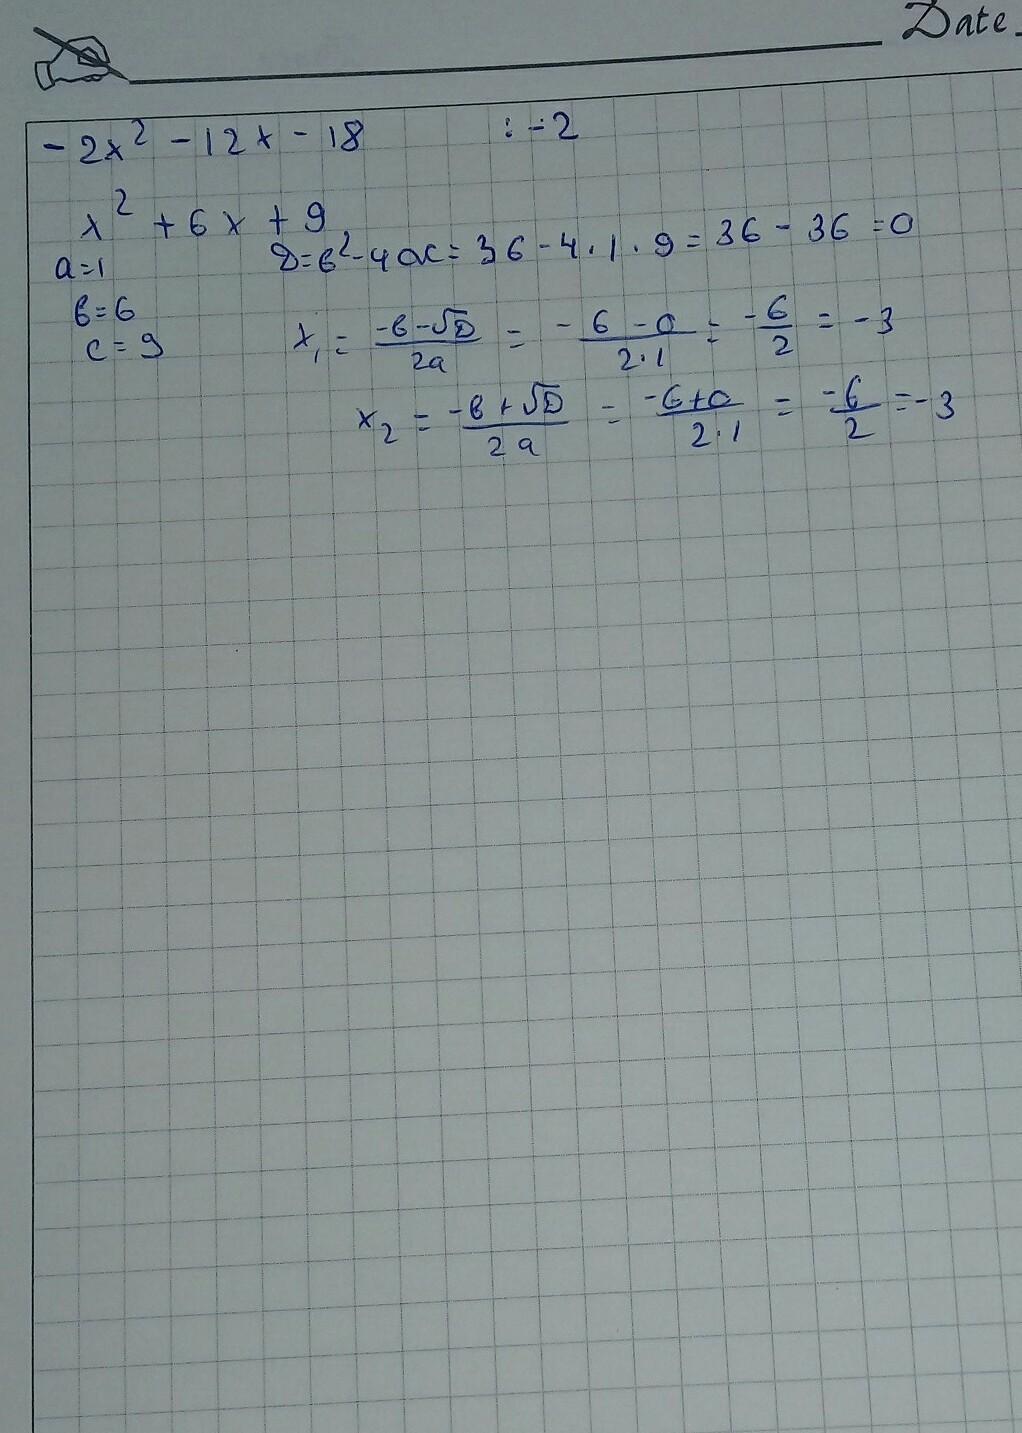 Date
-2x² -12x - 18 : -2
x² + 6x + 9
a=1 D=b²-4ac= 36-4·1·9=36-36=0
b=6
c=9 x₁ = \frac{-b-√D}{2a} = \frac{-6-0}{2·1} = \frac{-6}{2} = -3
x₂ = \frac{-b+√D}{2a} = \frac{-6+0}{2·1} = \frac{-6}{2} = -3